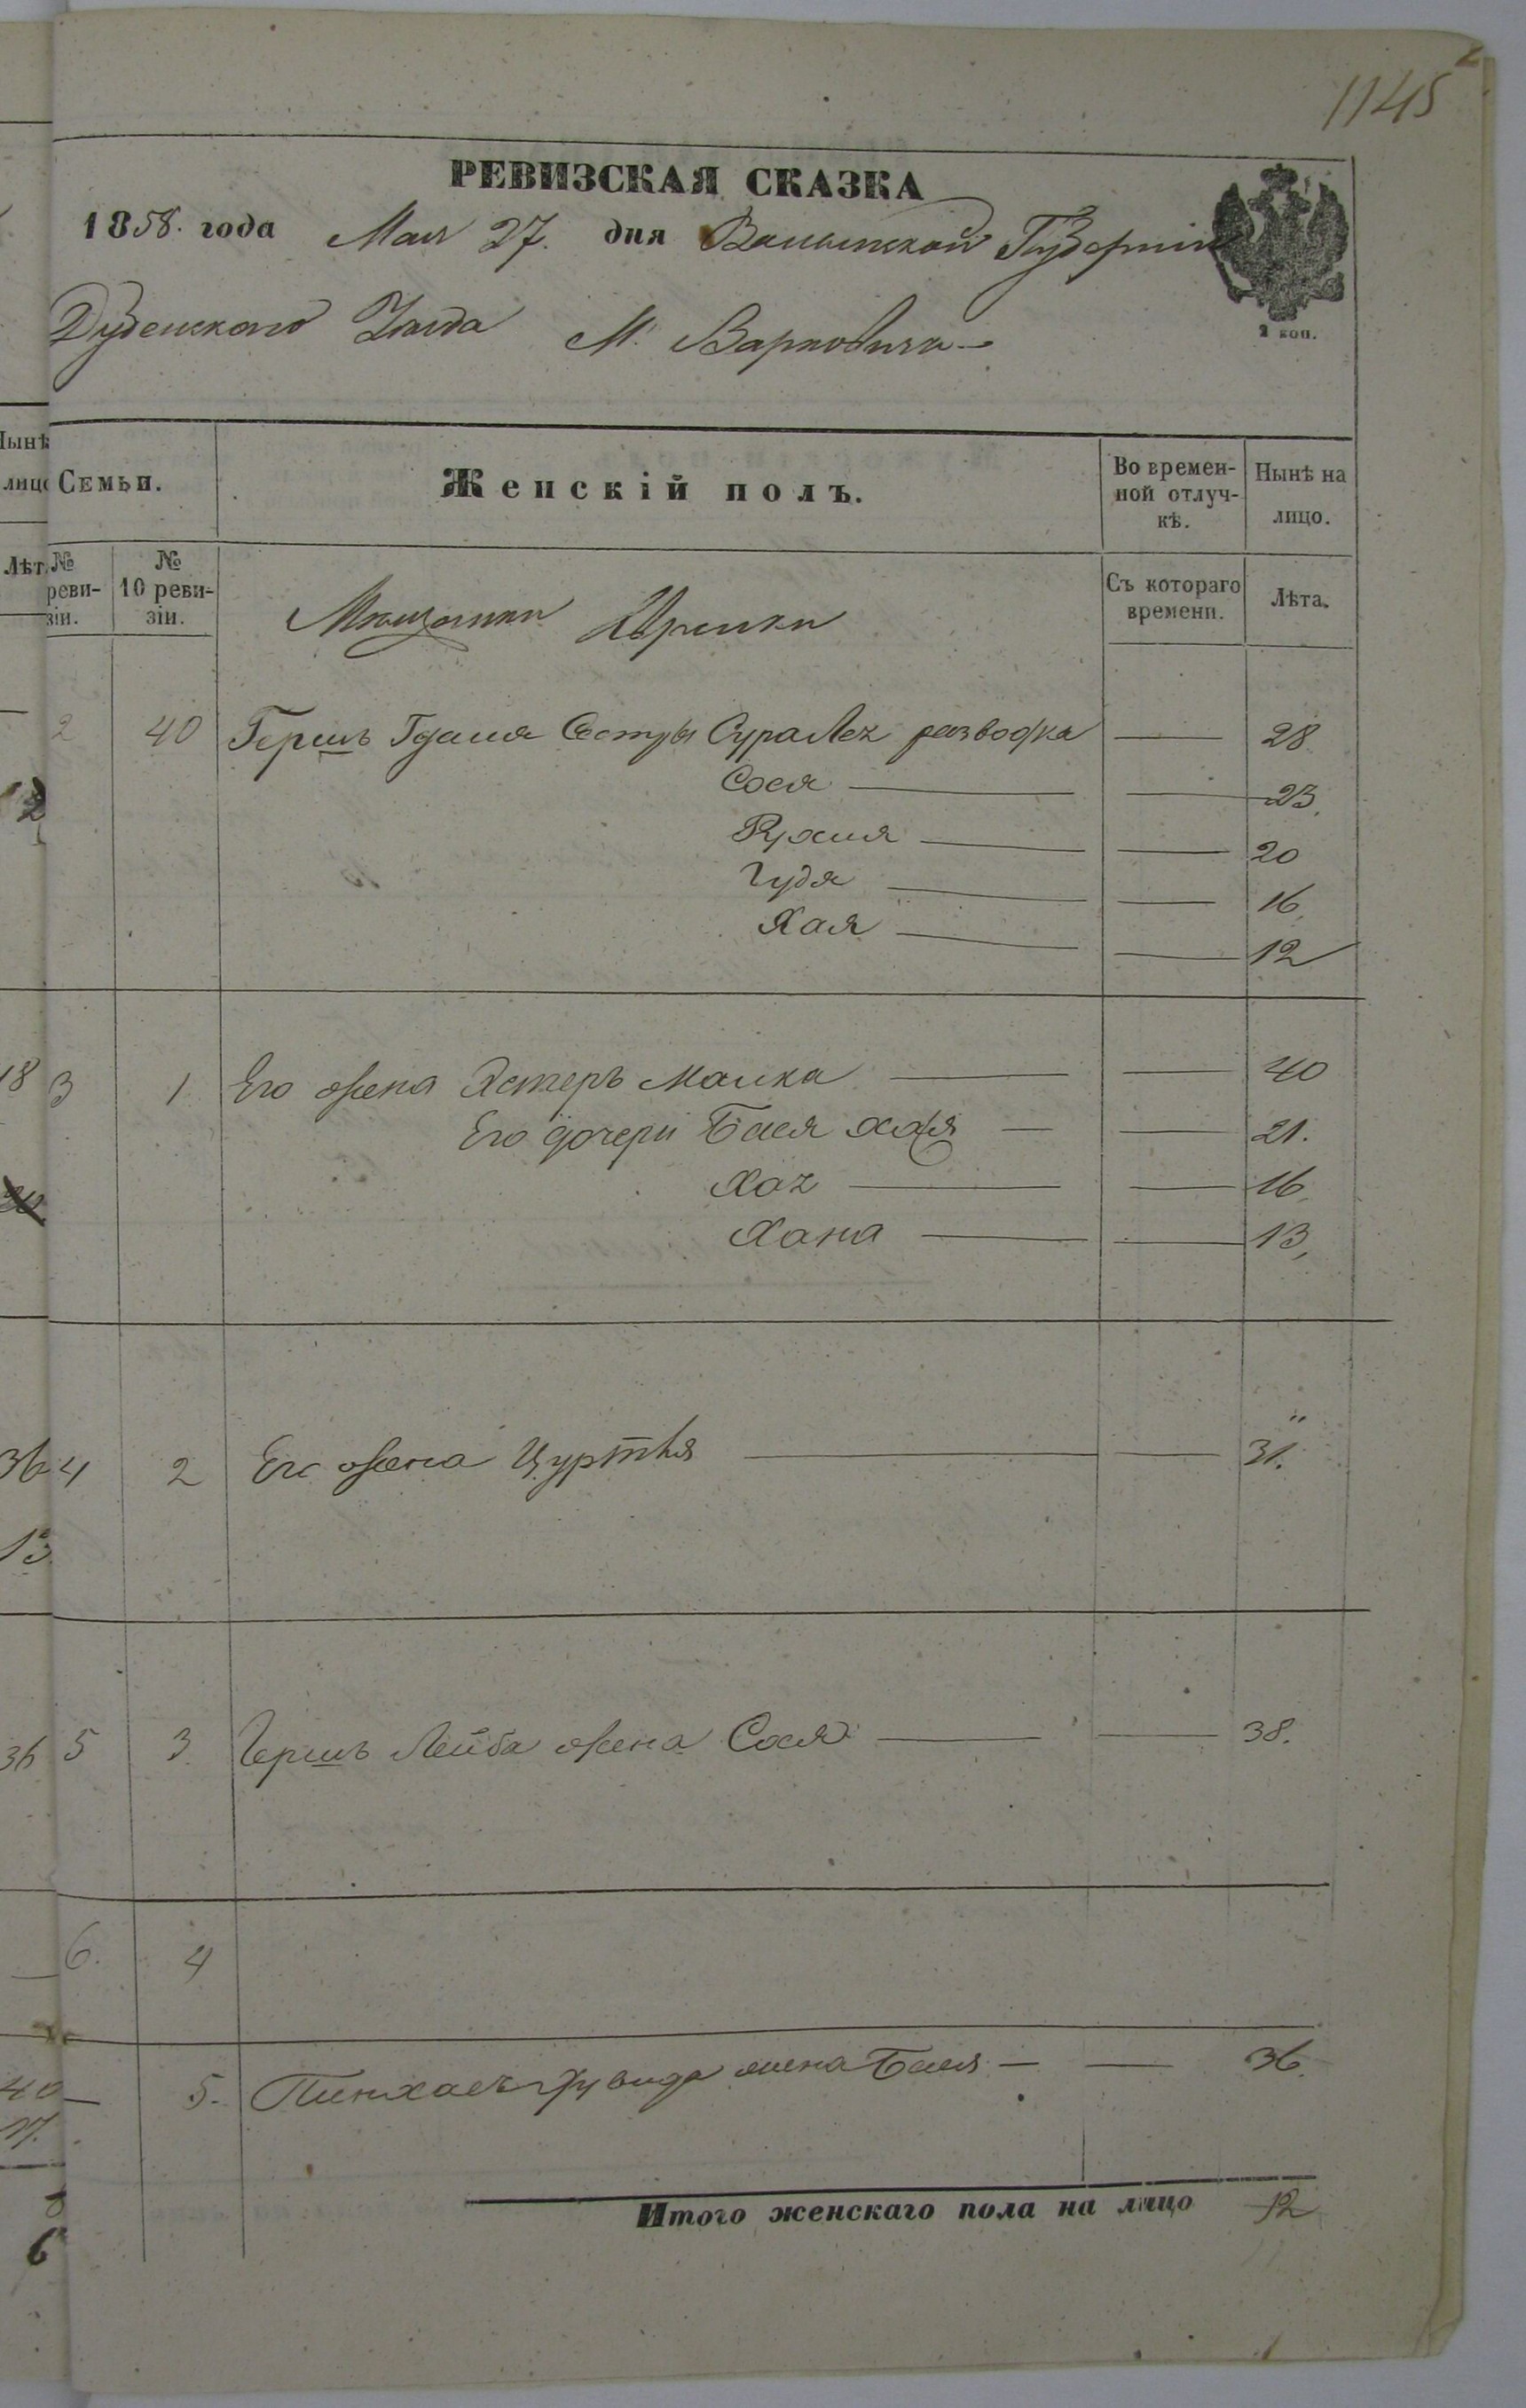 1145
РЕВИЗСКАЯ СКАЗКА
1858. года Мая 27. дня Волынской Губерніи
2 коп.
Дубенскаго Уѣзда М. Варковича
Нынѣ
лицо
Семьи.
Женскій полъ.
Во времен-
ной отлуч-
кѣ.
Нынѣ на
лицо.
Лѣт.
№
реви-
зіи.
№
10 реви-
зіи.
Съ котораго
времени.
Лѣта.
Мѣщанки Евреики
2 40 Гершъ Гдаля Сестры Сура Лея разводка — 28
Сося — 23.
Рухля — 20
Гудя — 16.
Хая — 12
18 3 1 Его жена Эстеръ Малка — 40
Его дочери Бася — 21.
— 16.
Хана — 13,
36 4 2 Его жена — 31.
13
36 5 3 Гершъ Лейба жена Сося — 38.
6. 4
40 — 5. Пинхасъ жена Бася — 36.
17.
Итого женскаго пола на лицо 12
6